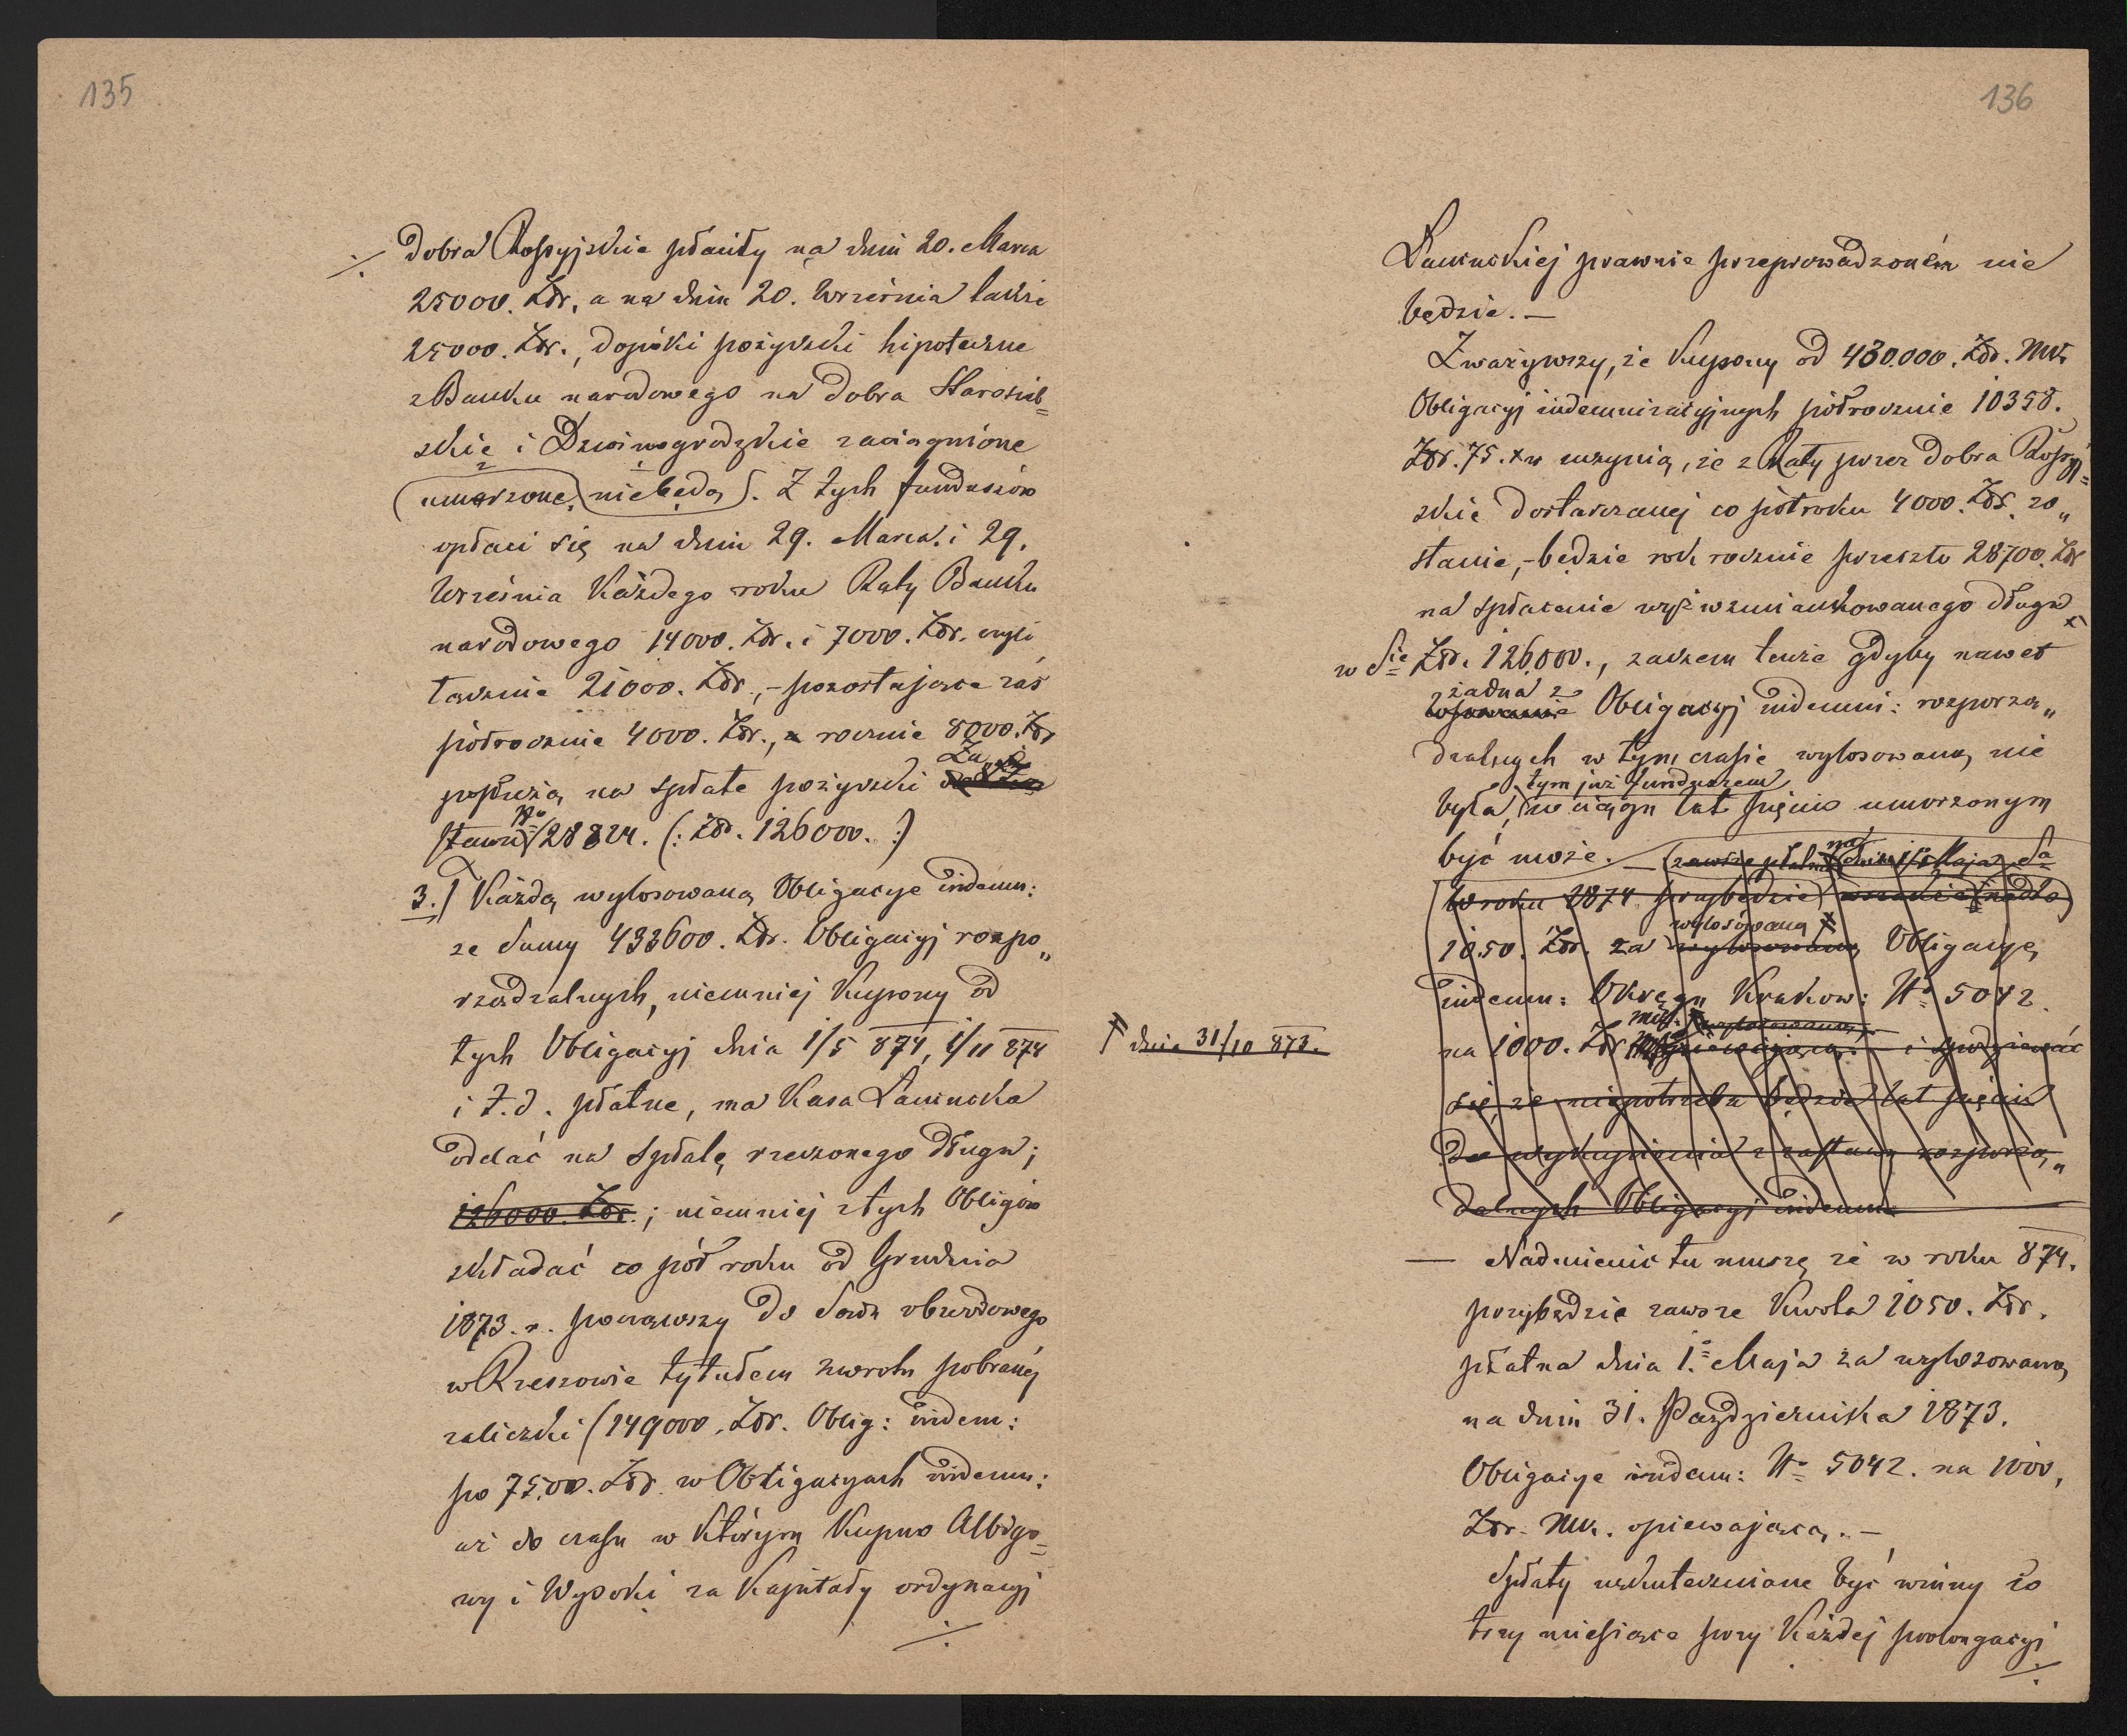 135
./. Dobra Rospyjskie płaciły na dniu 20. Marca
25000. Złr., a na dniu 20. Września także
25000. Złr., dopóki pożyczki hipoteczne
z Banku narodowego na dobra Starosiel=
skie i Dzwinogrodzkie zaciągnione
(umorzone) (niebędą). Z tych funduszów
opłaci się na dniu 29. Marca i 29.
Września Każdego roku Raty Banku
narodowego 14000. Złr. i 7000. Złr. czyli
łącznie 21000. Złr., – pozostające zaś
półrocznie 4000. Złr., a rocznie 8000. Złr
posłużą na spłatę pożyczki Za
stawu No 28824. (: Złr. 126000. :)
3.) Każdą wylosowaną Obligacye indemn:
ze Sumy 433600. Złr. Obligacyj rozpo„
rządzalnych, niemniej Kupony od
tych Obligacyj dnia 1/5 874, 1/11 874
i t.d. płatne, ma Kasa Łańcucka
odelać na spłatę rzeczonego długu;
126000. Złr.; niemniej z tych Obligów
składać co pół roku od Grudnia
1873. r. począwszy do Sądu obwodowego
w Rzeszowie tytułem zwrotu pobranéj
zaliczki (149000. Złr. Oblig: indem:
po 7500. Złr. w Obligacyach indemn:
aż do czasu w którym Kupno Albigo=
wy i Wysoki za Kapitały ordynacyi
./.
136
Łańcuckiej prawnie przeprowadzoném nie
będzie. –
Zważywszy, że Kupony od 430.000. Złr. Mk
Obligacyj indemnizacyjnych półrocznie 10358.
Złr. 75. xr uczynią, że z Raty przez dobra Rospyj=
skie dostarczanej co półroku 4000. Złr. zo„
stanie, – będzie rocznie przeszło 28700. Złr
na spłacenie wyż wzmiankowanego długu
w Sie Złr. 126,000., zaczem tenże gdyby nawet
żadna z
losowanie Obligacyj indemni: rozporzą„
dzalnych w tym czasie wylosowaną nie
tym już funduszem
była, w ciągu lat pięciu umorzonym
być może. – (zawsze płatne na dniu 1/5 Maja
(W roku 1874 przybędzie)
wylosowaną ‡
1050. Złr. za wylosowaną Obligacyę
indemn: Okręgu Krakow: No 5042
‡ dnia 31/10 873.
wylosowaną
na 1000. Złr i spodziewać
się, że niepotrzeba będzie lat pięciu
do wykupienia z zastawu rozporzą„
dalnych Obligacyj indemn
— Nadmienić tu muszę że w roku 874.
przybędzie zawsze Kwota 1050. Złr.
płatna dnia 1. Maja za wylosowaną
na dniu 31. Października 1873.
Obligacye indem: No 5042. na 1000,
Złr. Mk. opiewającą. –
Spłaty uskutecznione być winny co
trzy miesiące przy Każdej prolongacyi
./.